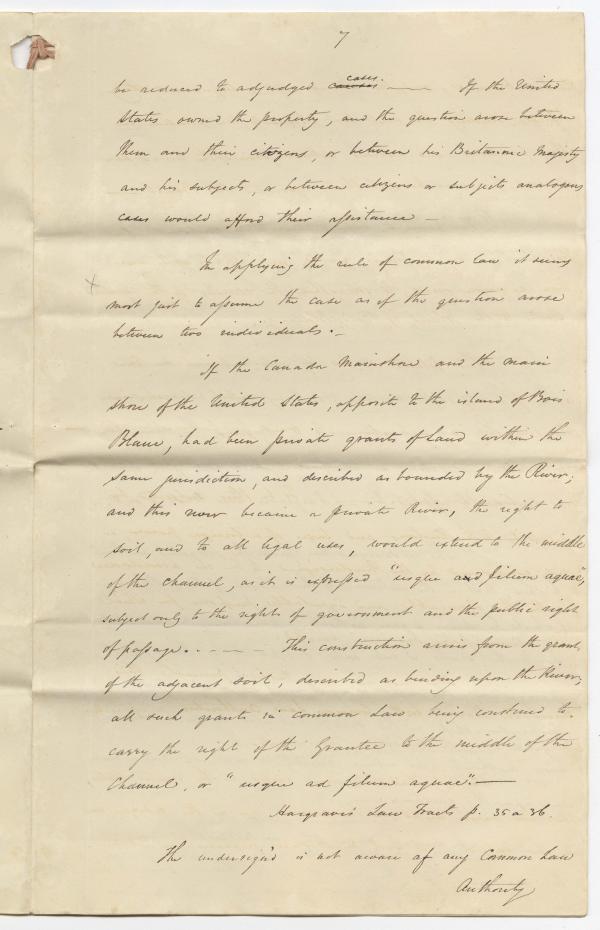 7
be reduced to adjudged causes cases. —— If the United
States owned the property, and the question arose between
them and their citizens, or between his Britannic Majesty
and his subjects, or between citizens or subjects analogous
cases would afford their assistance —
In applying the rule of common law it seems
x
most just to assume the case as if the question arose
between two individuals. —
If the Canada Mainshore and the main
shore of the United States, opposite to the island of Bois
Blanc, had been private grants of Land within the
same jurisdiction, and described as bounded by the River;
and this now became a private River, the right to
soil, and to all legal uses, would extend to the middle
of the channel, as it is expressed "usque ad filum aquae",
subject only to the rights of government and the public right
of passage. . — — — This construction arises from the grant
of the adjacent soil, described as binding upon the River,
all such grants in common Law being construed to
carry the right of the Grantee to the middle of the
Channel, or "usque ad filum aquae". —
Hargrave's Law Tracts p. 35 a 36.
The undersign'd is not aware of any Common Law
Authority